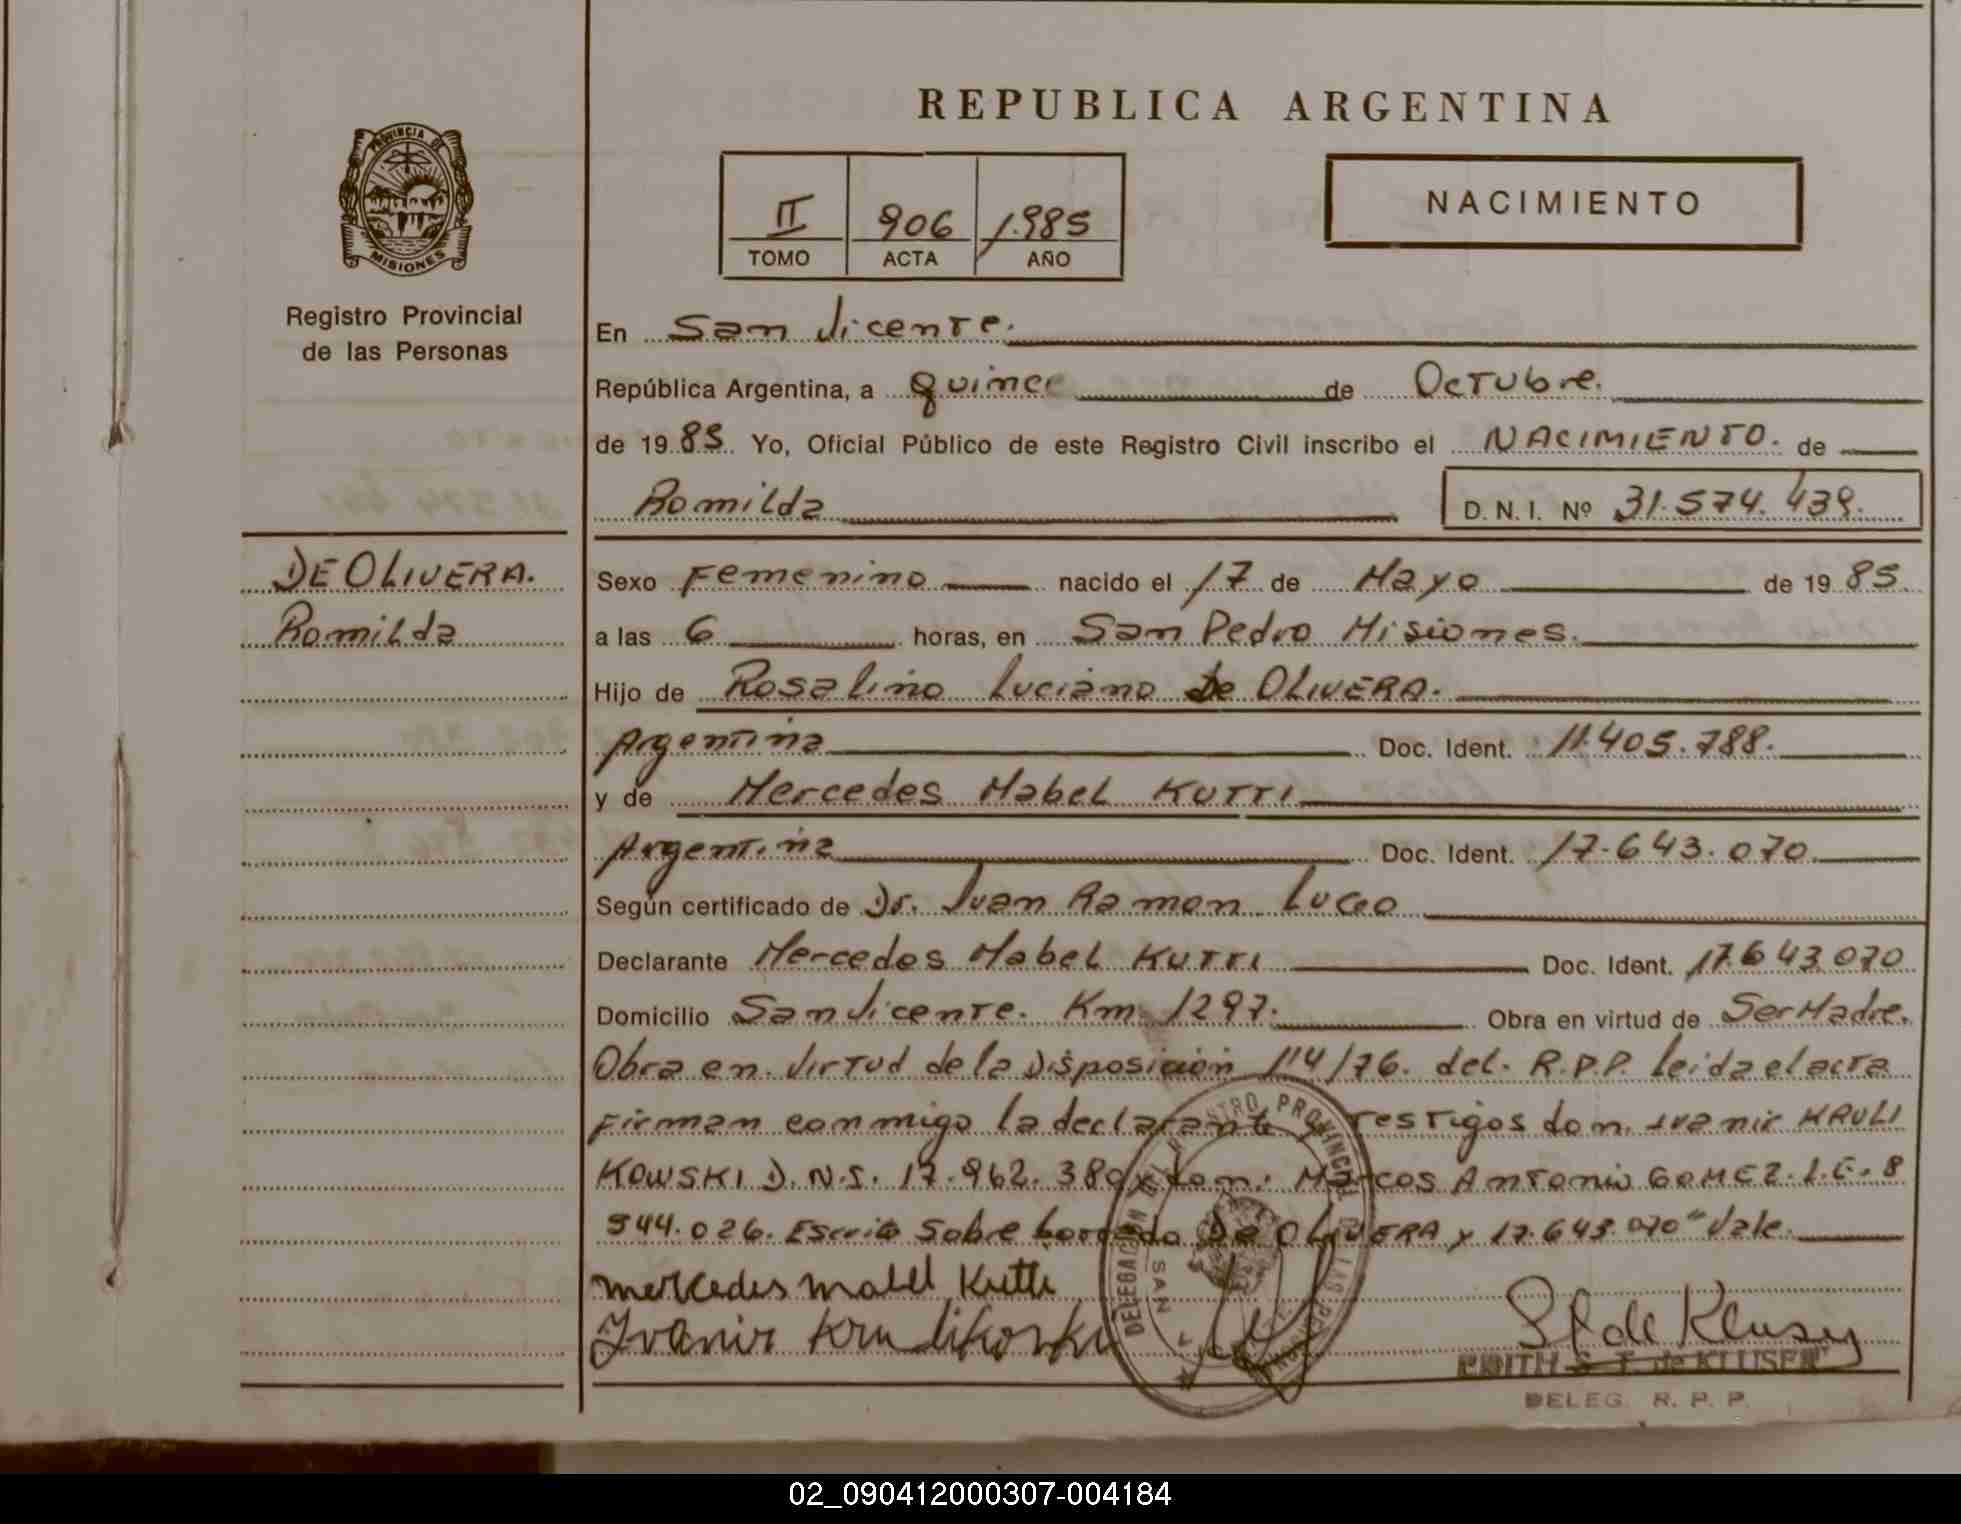 REPUBLICA ARGENTINA
PROVINCIA DE
MISIONES
Registro Provincial
de las Personas
II 906 1.985
TOMO ACTA AÑO
NACIMIENTO
En San Vicente.
República Argentina, a quince de Octubre.
de 1985. Yo, Oficial Público de este Registro Civil inscribo el NACIMIENTO. de
Romilda D. N. I. Nº 31.574.439.
DE OLIVERA.
Romilda
Sexo Femenino nacido el 17 de Mayo de 1985
a las 6 horas, en San Pedro Misiones.
Hijo de Rosalino Luciano De OLIVERA.
Argentina Doc. Ident. 11.405.788.
y de Mercedes Mabel KUTTI
Argentina Doc. Ident. 17.643.070
Según certificado de Dr. Juan Ramon
Declarante Mercedes Mabel KUTTI Doc. Ident. 17.643.070
Domicilio San Vicente. Km. 1297. Obra en virtud de Ser Madre.
Obra en virtud de la Disposición 114/76. del. R.P.P. leida el acta
firman conmigo la declarante y testigos don. Ivanir KRULI
KOWSKI D.N.I. 17.962.380 y don: Marcos Antonio GOMEZ. L.E. 8
544.026. Escrito sobre borrado De OLIVERA y 17.643.070" Vale.
mercedes mabel Kutti
Ivanir Krulikoski
DELEGACION REGISTRO PROVINCIAL DE LAS PERSONAS
SAN
EDITH S. F. de KLUSER
DELEG. R. P. P.
02_090412000307-004184